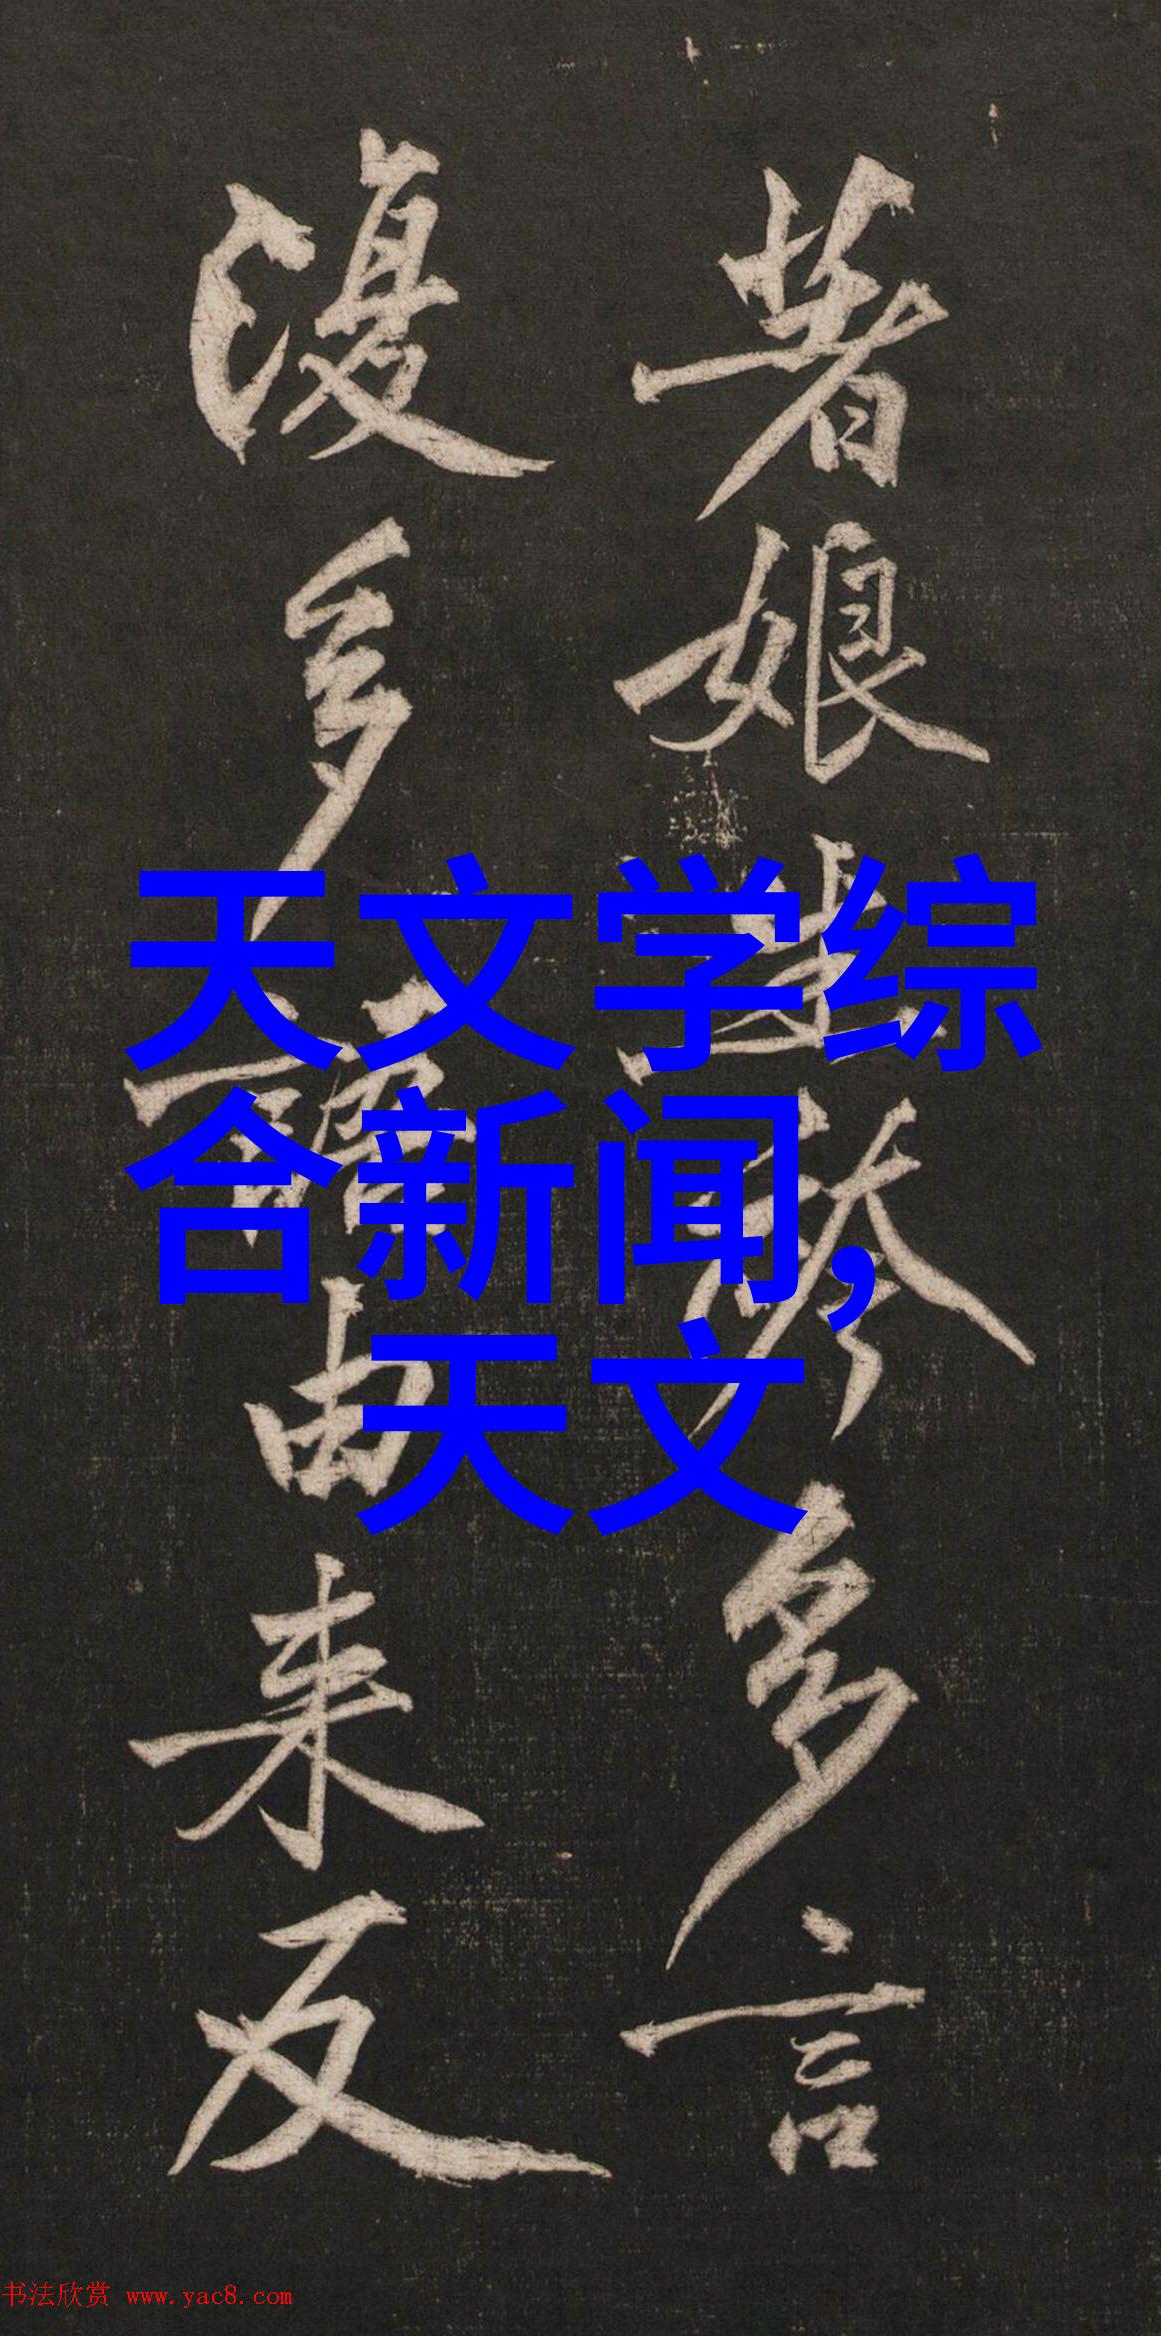 著娘多言
多由来反
天文学综
合新闻,
天文
书法欣赏 www.yac8.com